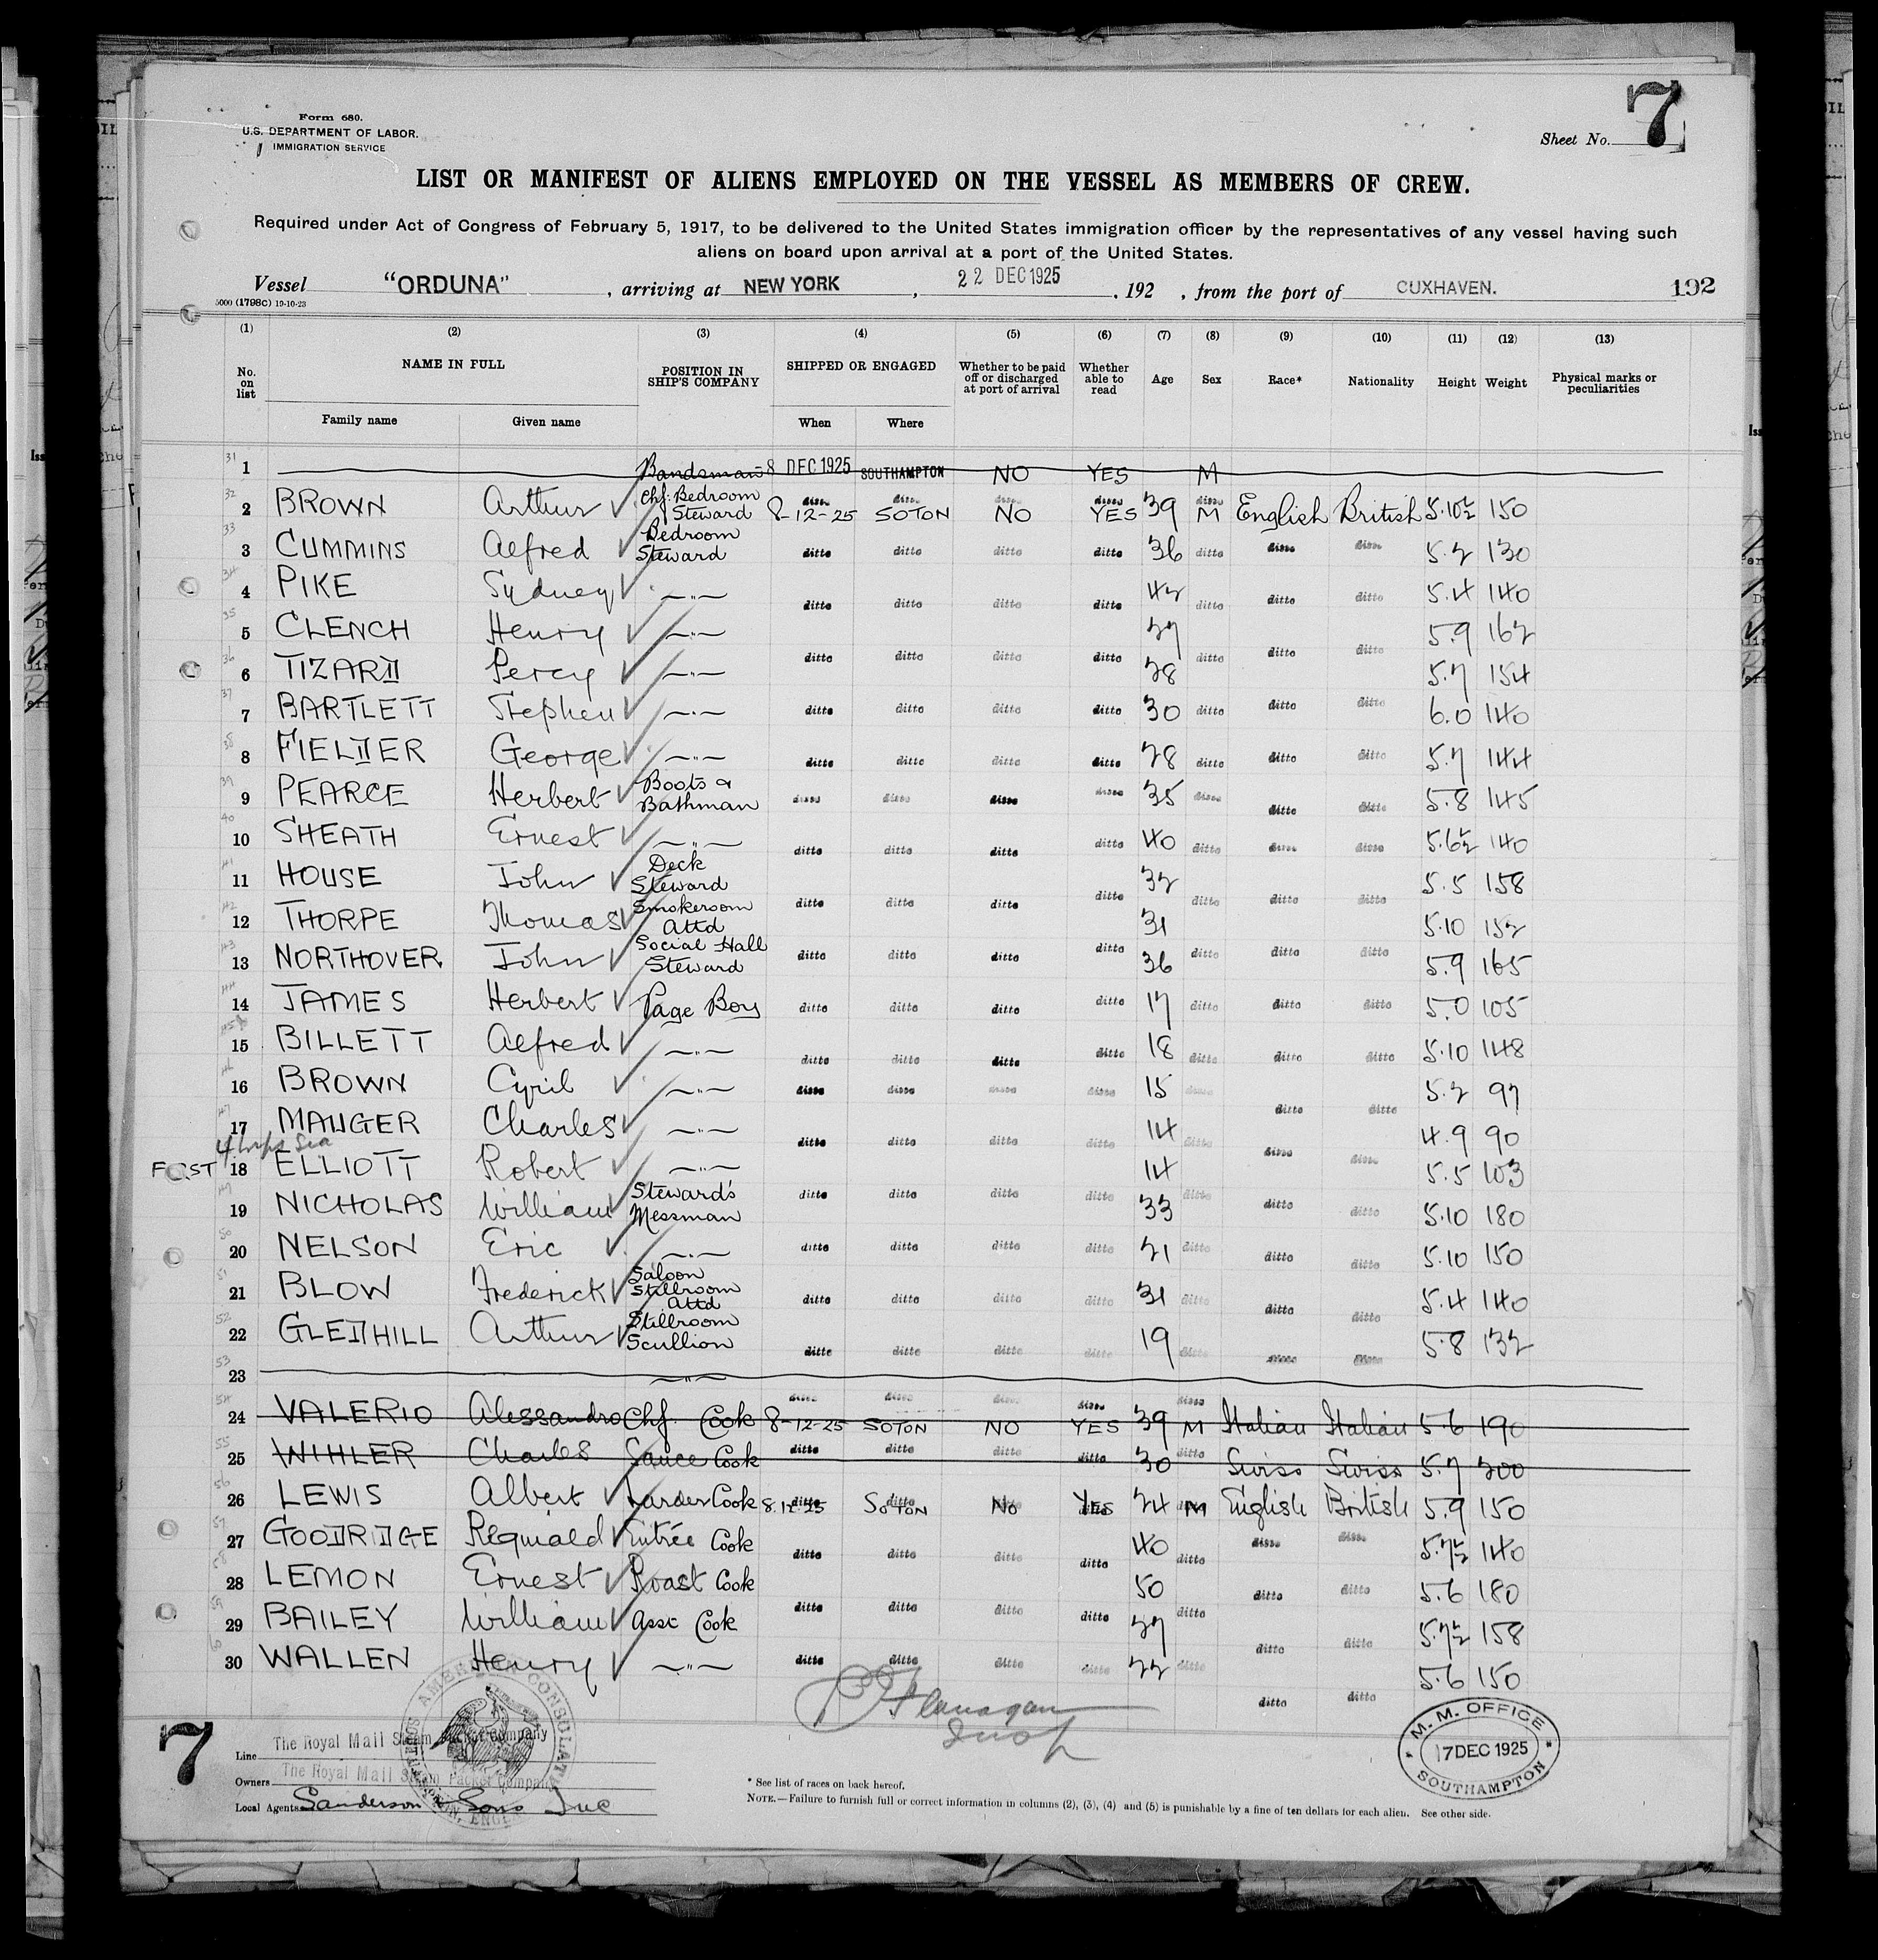 7
Form 680.
U.S. DEPARTMENT OF LABOR.
IMMIGRATION SERVICE
Sheet No.
LIST OR MANIFEST OF ALIENS EMPLOYED ON THE VESSEL AS MEMBERS OF CREW.
Required under Act of Congress of February 5, 1917, to be delivered to the United States immigration officer by the representatives of any vessel having such
aliens on board upon arrival at a port of the United States.
Vessel "ORDUNA", arriving at NEW YORK, 22 DEC 1925, 192 , from the port of CUXHAVEN. 192
5000 (1798C) 19-10-23
(1) (2) (3) (4) (5) (6) (7) (8) (9) (10) (11) (12) (13)
No. on list NAME IN FULL POSITION IN SHIP'S COMPANY SHIPPED OR ENGAGED Whether to be paid off or discharged at port of arrival Whether able to read Age Sex Race* Nationality Height Weight Physical marks or peculiarities
Family name Given name When Where
31 1 Bandsman 8 DEC 1925 SOUTHAMPTON NO YES M
32 2 BROWN Arthur Chf. Bedroom Steward ditto 8-12-25 ditto SOTON ditto NO ditto YES 39 ditto M English British 5.10½ 150
33 3 CUMMINS Alfred Bedroom Steward ditto ditto ditto ditto 36 ditto ditto ditto 5.2 130
34 4 PIKE Sydney —"— ditto ditto ditto ditto 42 ditto ditto ditto 5.4 140
35 5 CLENCH Henry —"— ditto ditto ditto ditto 27 ditto ditto ditto 5.9 162
36 6 TIZARD Percy —"— 28 5.7 154
37 7 BARTLETT Stephen —"— ditto ditto ditto ditto 30 ditto ditto ditto 6.0 140
38 8 FIELDER George —"— ditto ditto ditto ditto 28 ditto ditto ditto 5.7 144
39 9 PEARCE Herbert Boots & Bathman ditto ditto ditto ditto 35 ditto ditto ditto 5.8 145
40 10 SHEATH Ernest —"— ditto ditto ditto ditto 40 ditto ditto ditto 5.6½ 140
41 11 HOUSE John Deck Steward ditto ditto ditto ditto 32 ditto ditto ditto 5.5 158
42 12 THORPE Thomas Smokeroom Attd 31 5.10 152
43 13 NORTHOVER John Social Hall Steward ditto ditto ditto ditto 36 ditto ditto ditto 5.9 165
44 14 JAMES Herbert Page Boy ditto ditto ditto ditto 17 ditto ditto ditto 5.0 105
45 15 BILLETT Alfred —"— ditto ditto ditto ditto 18 ditto ditto ditto 5.10 148
46 16 BROWN Cyril —"— ditto ditto ditto ditto 15 ditto ditto ditto 5.2 97
47 17 MAUGER Charles —"— ditto ditto ditto ditto 14 ditto ditto ditto 4.9 90
FIRST 18 ELLIOTT Robert —"— 14 5.5 103
49 19 NICHOLAS William Steward's Messman ditto ditto ditto ditto 33 ditto ditto ditto 5.10 180
50 20 NELSON Eric —"— ditto ditto ditto ditto 21 ditto ditto ditto 5.10 150
51 21 BLOW Frederick Saloon Stillroom Attd ditto ditto ditto ditto 31 ditto ditto ditto 5.4 140
52 22 GLEDHILL Arthur Stillroom Scullion ditto ditto ditto ditto 19 ditto ditto ditto 5.8 132
53 23 —"—
54 24 VALERIO Alessandro Chf. Cook ditto 8-12-25 ditto SOTON ditto NO ditto YES 39 ditto M Italian Italian 5.6 190
55 25 WIHLER Charles Sauce Cook ditto ditto ditto ditto 30 ditto Swiss Swiss 5.7 200
56 26 LEWIS Albert Larder Cook 8.12.25 ditto SOTON ditto No YES 24 M English British 5.9 150
57 27 GOODRIDGE Reginald Entrée Cook ditto ditto ditto ditto 40 ditto ditto ditto 5.7½ 140
58 28 LEMON Ernest Roast Cook ditto ditto ditto ditto 50 ditto ditto ditto 5.6 180
59 29 BAILEY William Asst Cook 27 ditto ditto 5.7½ 158
60 30 WALLEN Henry —"— ditto ditto ditto ditto 22 ditto ditto ditto 5.6 150
Flanagan
Insp
7
Line The Royal Mail Steam Packet Company
Owners The Royal Mail Steam Packet Company
Local Agents Sanderson & Sons Inc
AMERICAN CONSULATE
SOUTHAMPTON, ENGLAND
M. M. OFFICE
17 DEC 1925
SOUTHAMPTON
* See list of races on back hereof.
NOTE.—Failure to furnish full or correct information in columns (2), (3), (4) and (5) is punishable by a fine of ten dollars for each alien. See other side.